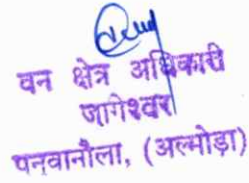 वन क्षेत्र अधिकारी
जागेश्वर
पनवानौला, (अल्मोड़ा)